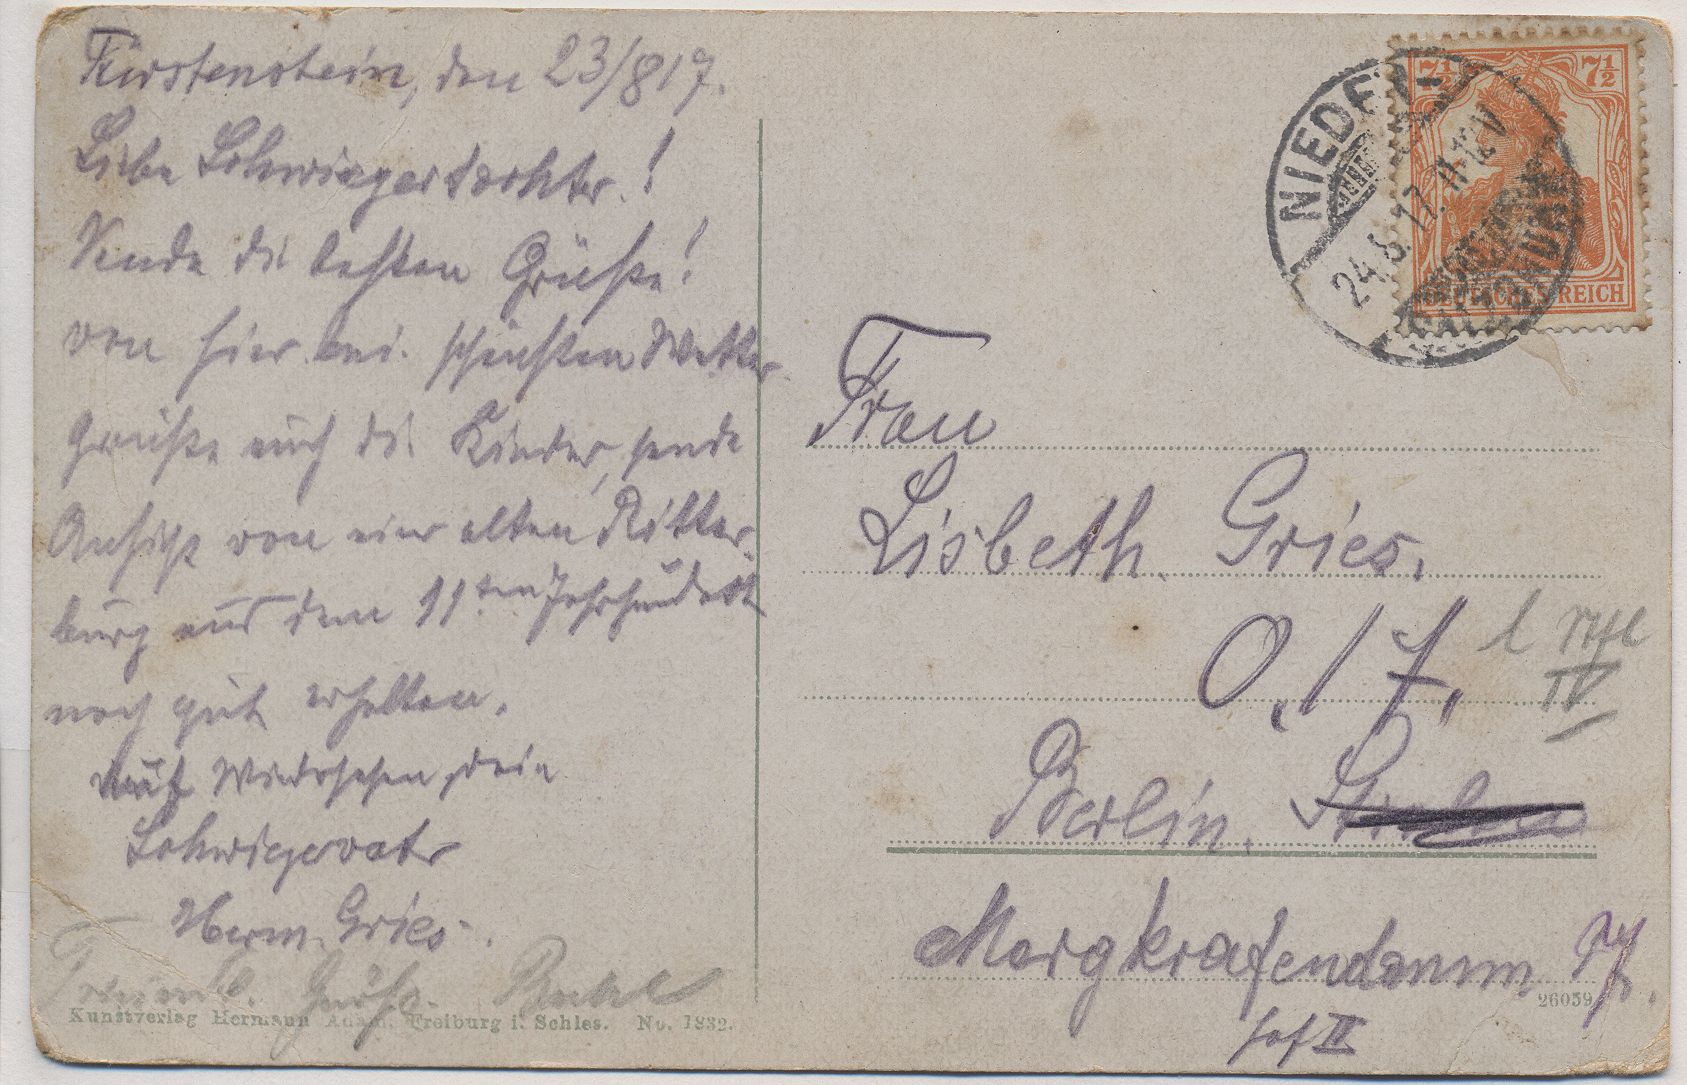 Fürstenstein, den 23/8 17.
Liebe Schwiegertochter!
Sende die besten Grüße!
von hier bei schönsten Wetter
Grüße auch die Kinder, sende
Ansicht von einer alten Ritter-
burg aus dem 11ten Jahrhundert
noch gut erhalten.
auf Wiedersehen, dein
Schwiegervater
Herm. Gries.
Freundl. Grüße
Kunstverlag Hermann Adam, Freiburg i. Schles. No. 1832.
7½ 7½
DEUTSCHES REICH
NIEDER-
SALZBRUNN
24.8.17. 11-12V
Frau
Lisbeth Gries.
O. 17.
IV
Berlin.
Margkrafendamm 17.
26059
Hof II